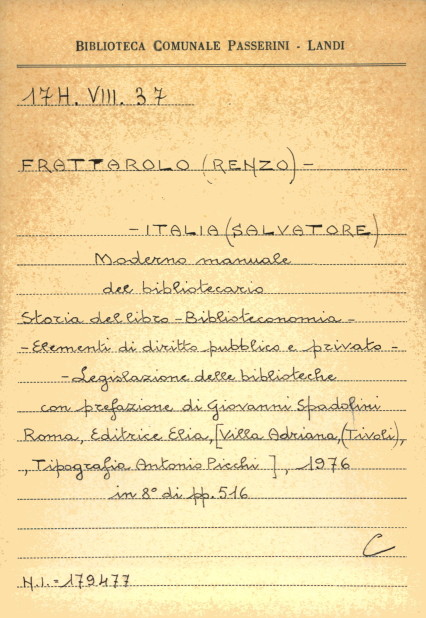 BIBLIOTECA COMUNALE PASSERINI - LANDI
17H. VIII. 37
FRATTAROLO (RENZO) -
- ITALIA (SALVATORE)
Moderno manuale
del bibliotecario
Storia del libro - Biblioteconomia -
- Elementi di diritto pubblico e privato -
- Legislazione delle biblioteche
con prefazione di Giovanni Spadolini
Roma, Editrice Elia, [Villa Adriana, (Tivoli),
, Tipografia Antonio Picchi ], 1976
in 8° di pp. 516
C
N.I. = 179477